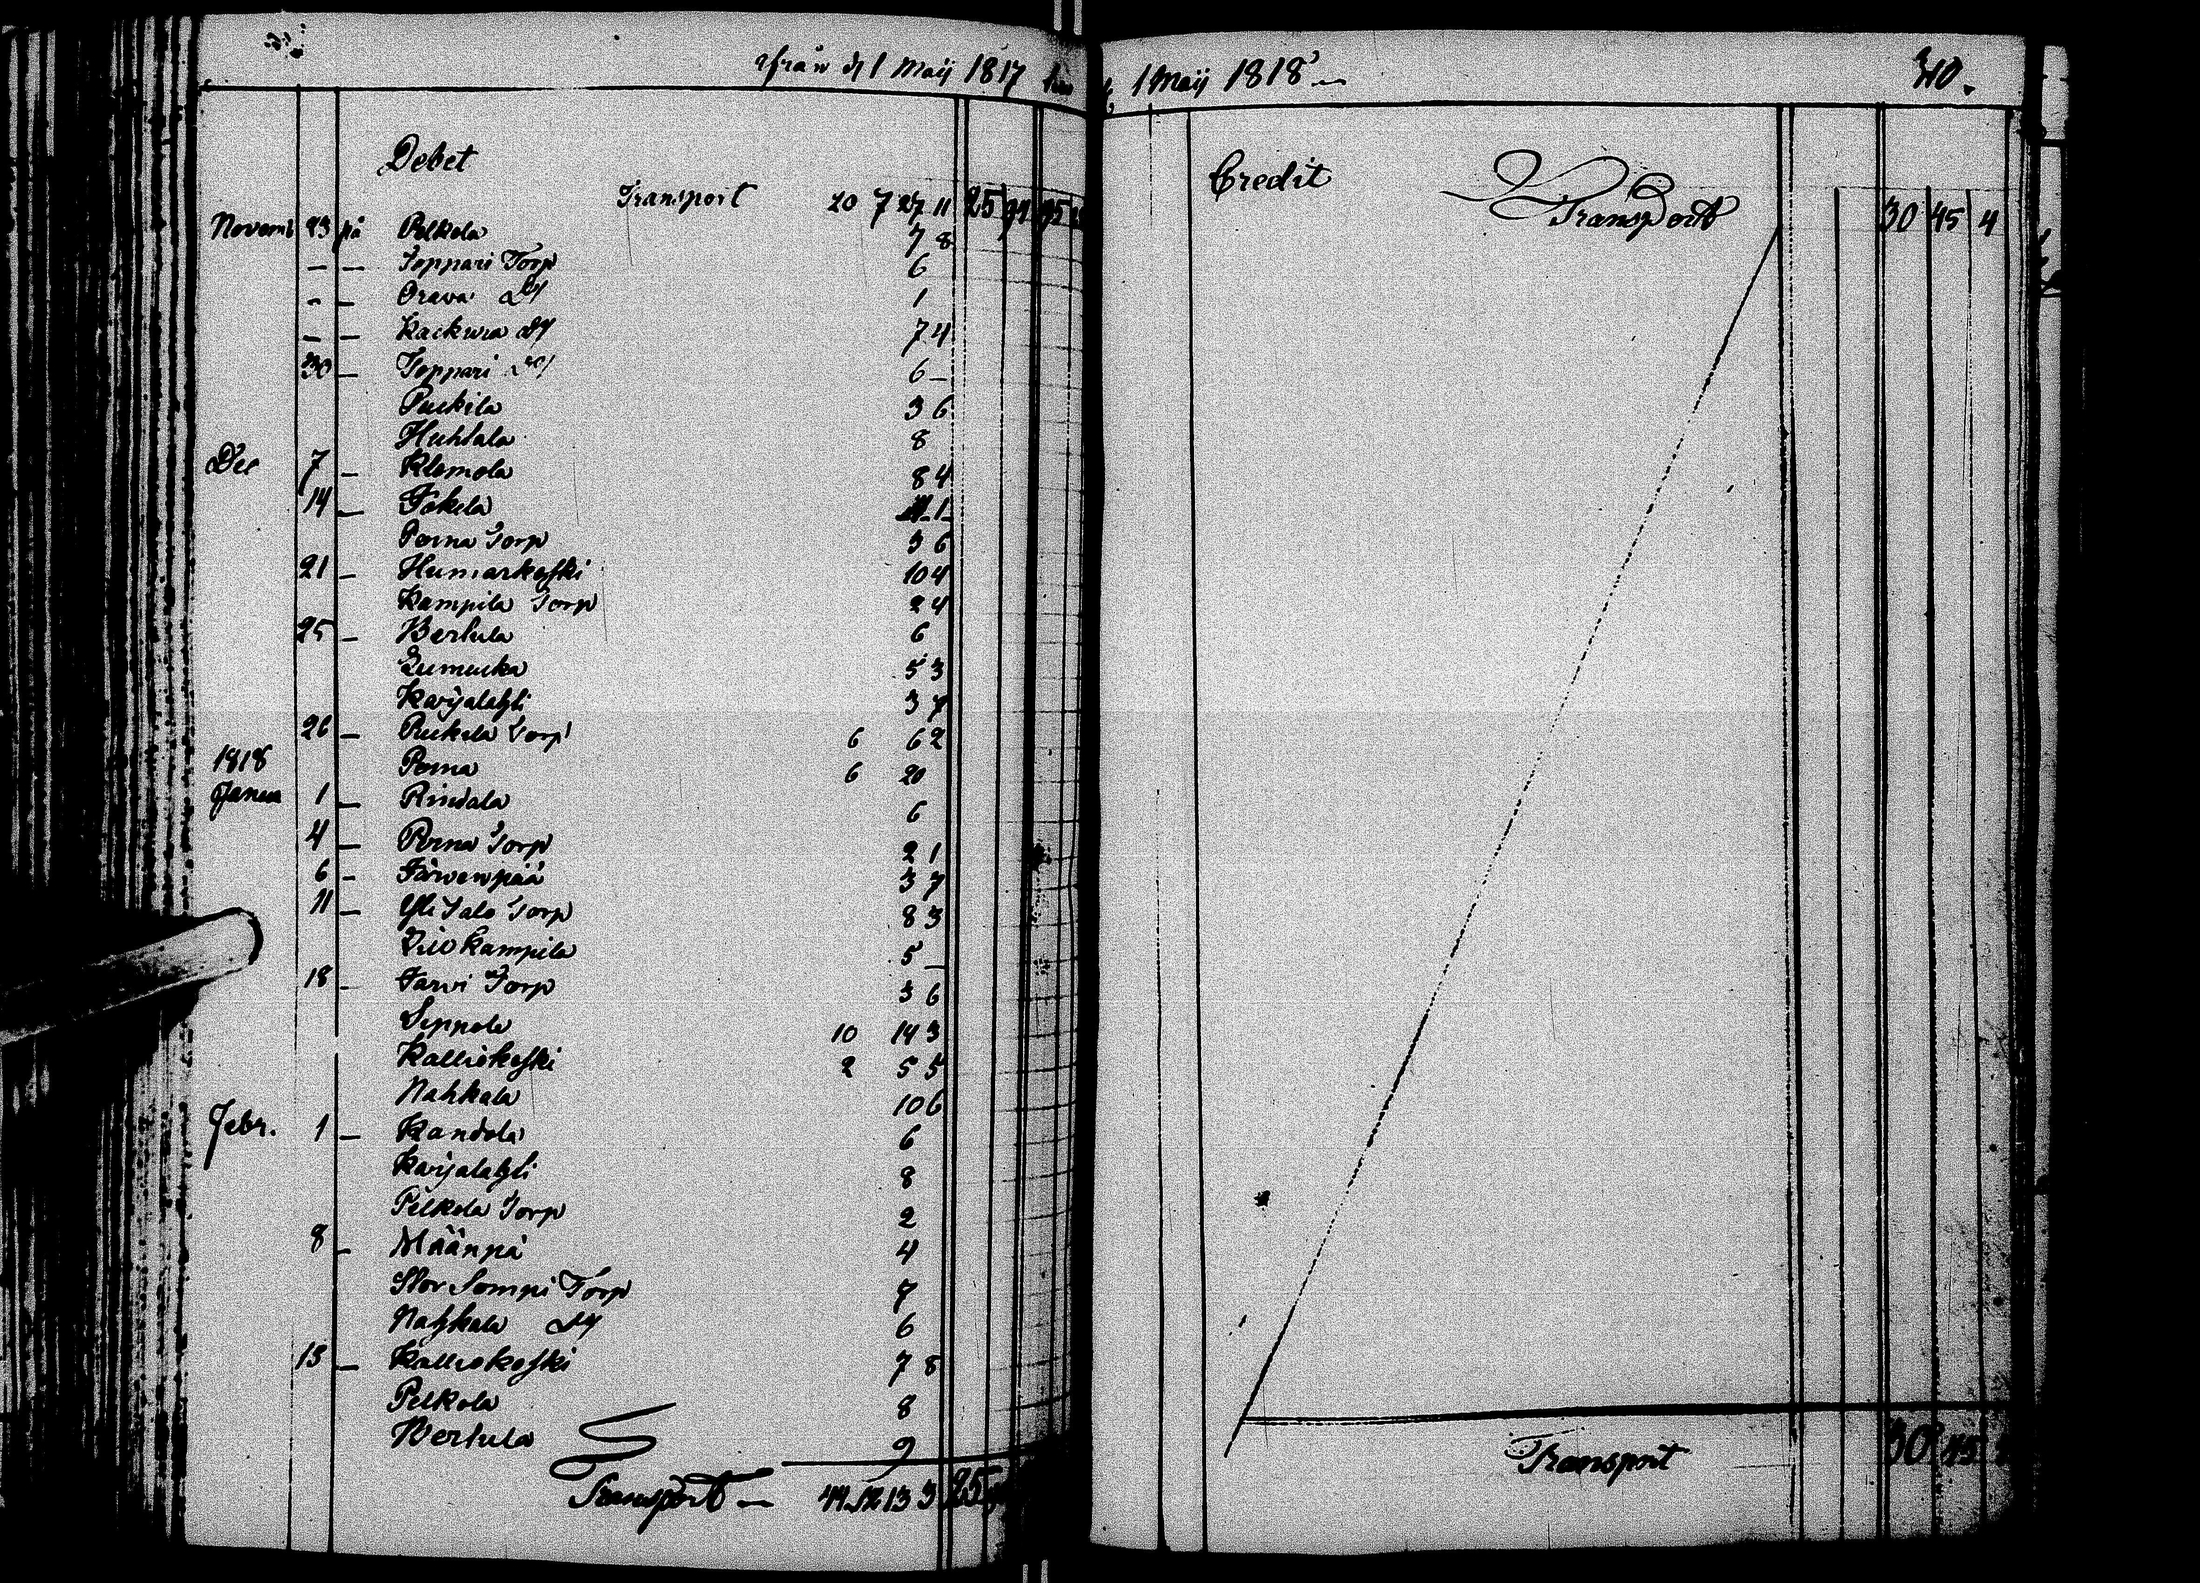 ifrån d 1 Maij 1817 1 Maij 1818
40.
Debet
Transport 20 7 27 11 25
Novemb 23 på Pelkola 7 8
— — Joppari Torp 6
- — Orava Dº 1
— — Kackura Dº 7 4
30 — Joppari Dº 6 —
Puckila 3 6
Huhtala 8
Dec 7 — Klemola 8 4
14 — Jokela 1
Perna Torp 3 6
21 — Humarkoski 10 4
Kampila Torp 2 4
25 — Bertula 6
Lumucka 5 3
Karijalahti 3 7
26 — Puckela Torp 6 6 2
1818
Perna 6 20
Janua 1 — Rindala 6
4 — Perna Torp 2 1
6 — Järvenpää 3 7
11 — Yli Talo Torp 8 3
Kampila 5 —
18 — Jarvi Torp 3 6
Seppala 10 14 3
Kalliokoski 2 5 5
Nahkala 10 6
Febr. 1 — Kandola 6
Karijalahti 8
Pelkola Torp 2
8 — Määnpä 4
Stor Sompi Torp 7
Nahkala Dº 6
15 — Kalliokoski 7 8
Pelkola 8
Bertula 9
Transport — 44 12 13 3 25
Credit
Transport 30 45 4
Transport 30 45